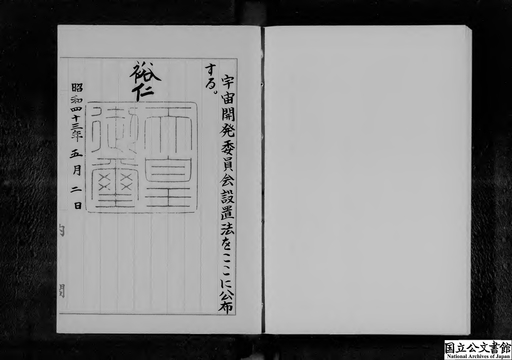 宇宙開発委員会設置法をここに公布
する。
裕仁
天皇
御璽
昭和四十三年五月二日
国立公文書館
National Archives of Japan